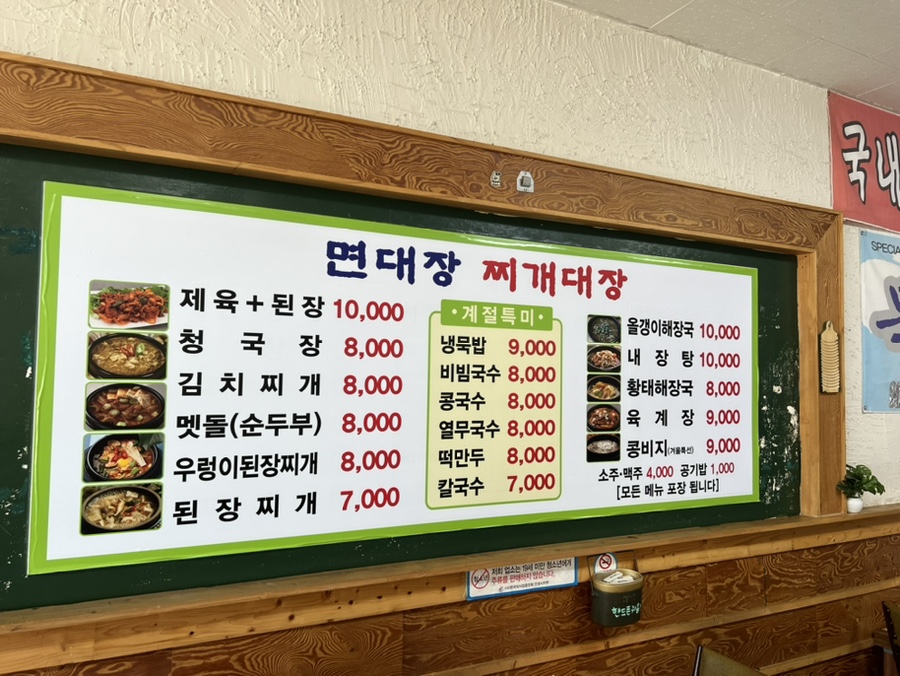 면대장 찌개대장
제육+된장 10,000
청국장 8,000
김치찌개 8,000
멧돌(순두부) 8,000
우렁이된장찌개 8,000
된장찌개 7,000
•계절특미•
냉묵밥 9,000
비빔국수 8,000
콩국수 8,000
열무국수 8,000
떡만두 8,000
칼국수 7,000
올갱이해장국 10,000
내장탕 10,000
황태해장국 8,000
육계장 9,000
콩비지(겨울특선) 9,000
소주·맥주 4,000 공기밥 1,000
[모든 메뉴 포장 됩니다]
국내
SPECIA
저희 업소는 19세 미만 청소년에게
주류를 판매하지 않습니다.